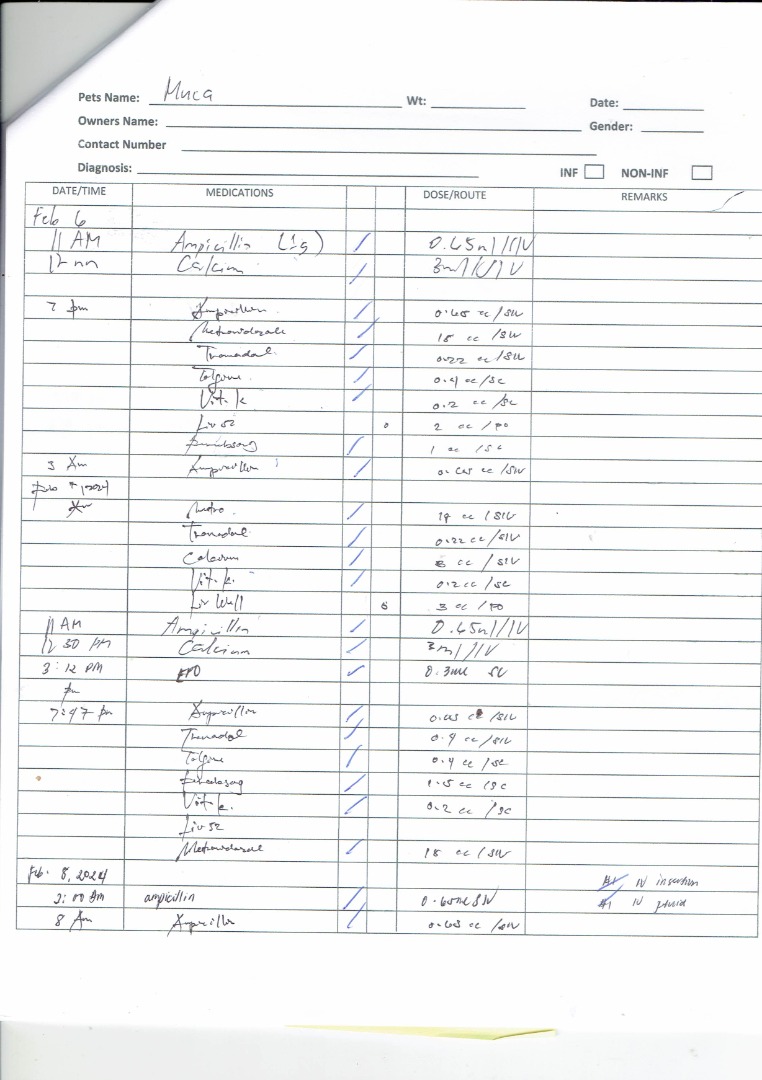 Pets Name: Muca Wt: Date:
Owners Name: Gender:
Contact Number
Diagnosis: INF NON-INF
DATE/TIME MEDICATIONS DOSE/ROUTE REMARKS
Feb 6
11 AM Ampicillin (1g) / 0.65ml/SIV
12 nn Calcium / 3ml/SIV
7 pm Ampicillin / cc/SIV
Metronidazole / 18 cc /SIV
Tramadol / 0.22 cc/SIV
Tolfine / 0.4 cc/SC
Vit. K / 0.2 cc /SC
Liv 52 2 cc /PO
/ 1 cc /SC
3 Am Ampicillin / cc /SIV
Feb 7, 2024
Am Metro / 18 cc /SIV
Tramadol / 0.22 cc/SIV
Calcium / cc /SIV
Vit. K. / 0.2 cc /SC
Liv Well 3 cc /PO
11 AM Ampicillin / 0.65ml/IV
12 30 PM Calcium / 3ml/IV
3:12 PM EPO / 0.3ml SC
pm
7:47 pm Ampicillin / /SIV
Tramadol / 0.4 cc /SIV
Tolfine / 0.4 cc /SC
/ 1.5 cc /SC
Vit K. / 0.2 cc /SC
Liv 52
Metronidazole / 18 cc /SIV
Feb. 8, 2024 #1 IV insertion
3:00 Am ampicillin / 0.65ml SIV #1 IV fluid
8 Am Ampicillin / cc /SIV